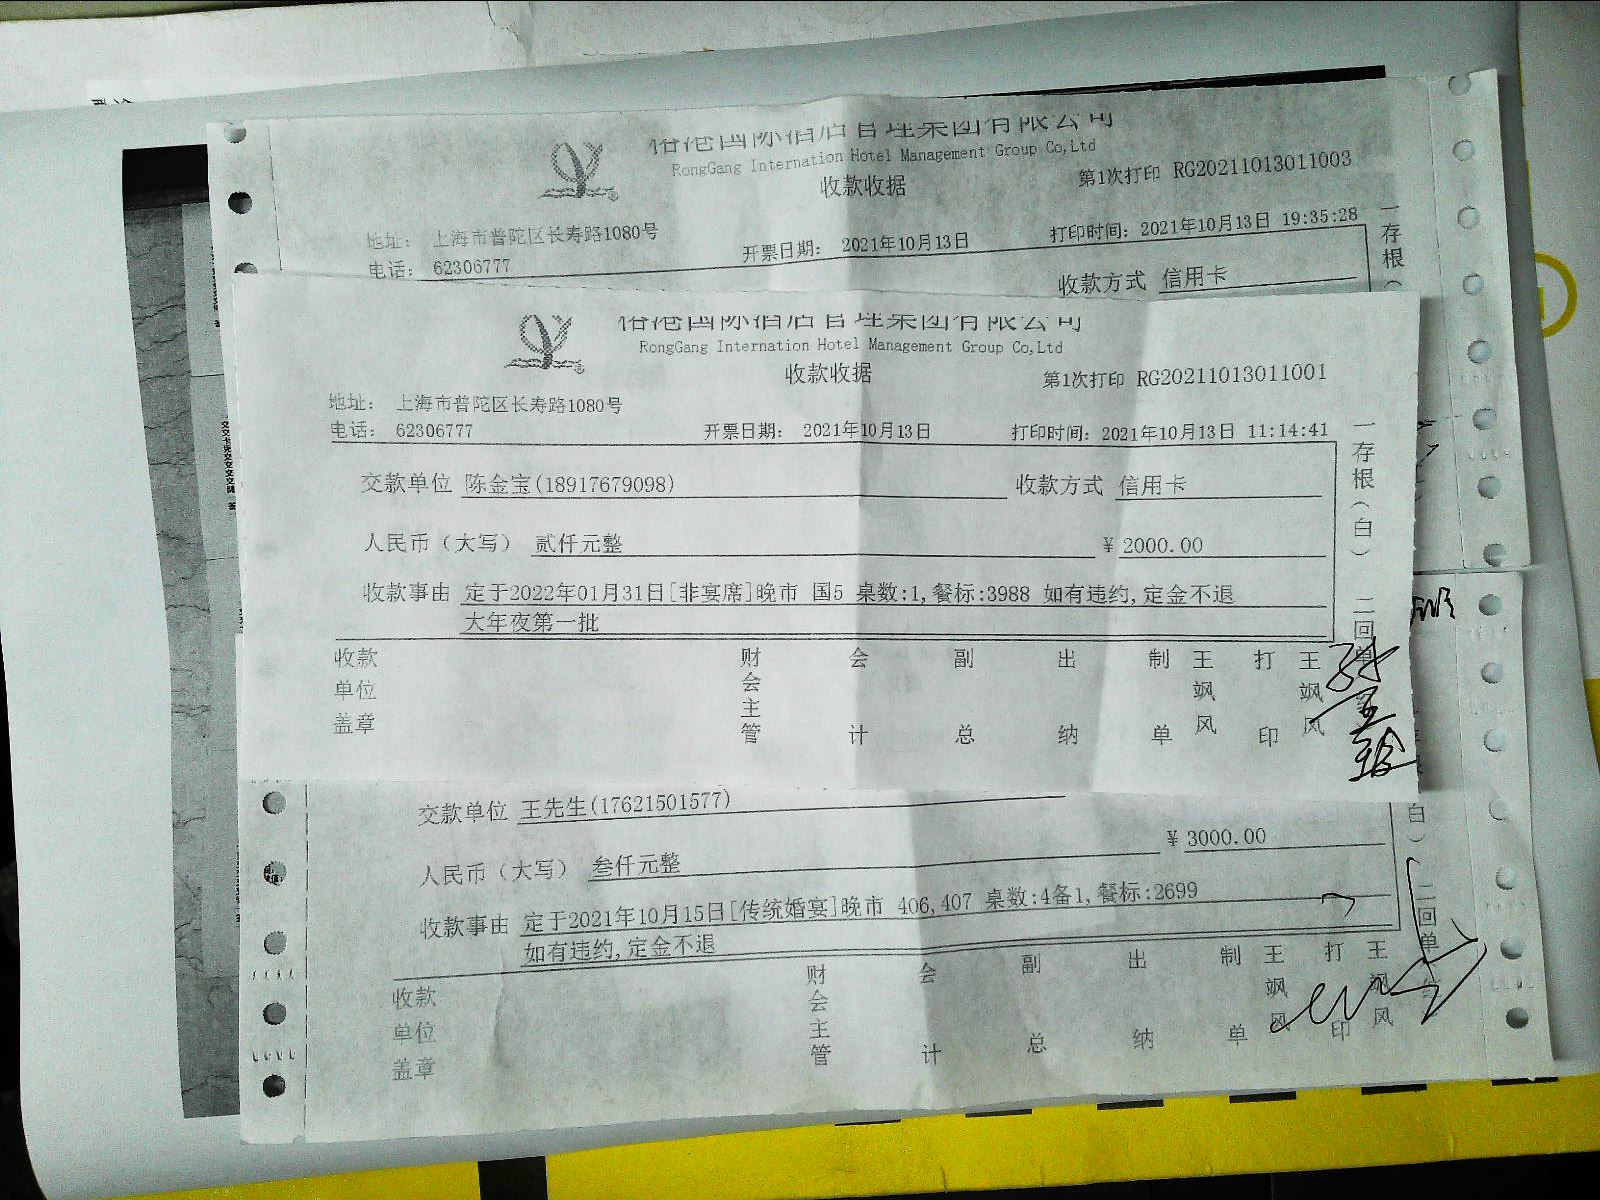 国际酒店管理集团有限公司
RongGang Internation Hotel Management Group Co,Ltd
收款收据
第1次打印 RG20211013011003
地址： 上海市普陀区长寿路1080号
电话： 62306777
开票日期： 2021年10月13日
打印时间： 2021年10月13日 19:35:28
收款方式 信用卡
一存根（
国际酒店管理集团有限公司
RongGang Internation Hotel Management Group Co,Ltd
收款收据
第1次打印 RG20211013011001
地址： 上海市普陀区长寿路1080号
电话： 62306777
开票日期： 2021年10月13日
打印时间： 2021年10月13日 11:14:41
交款单位 陈金宝(18917679098)
收款方式 信用卡
人民币（大写） 贰仟元整
¥ 2000.00
收款事由 定于2022年01月31日[非宴席]晚市 国5 桌数:1,餐标:3988 如有违约,定金不退
大年夜第一批
一存根（白） 二回单
收款单位盖章
财会主管
会计
副总
出纳
制单
王飒风
打印
王飒风
交款单位 王先生(17621501577)
人民币（大写） 叁仟元整
¥ 3000.00
收款事由 定于2021年10月15日[传统婚宴]晚市 406,407 桌数:4备1,餐标:2699
如有违约,定金不退
白） 二回单
收款单位盖章
财会主管
会计
副总
出纳
制单
王飒风
打印
王飒风